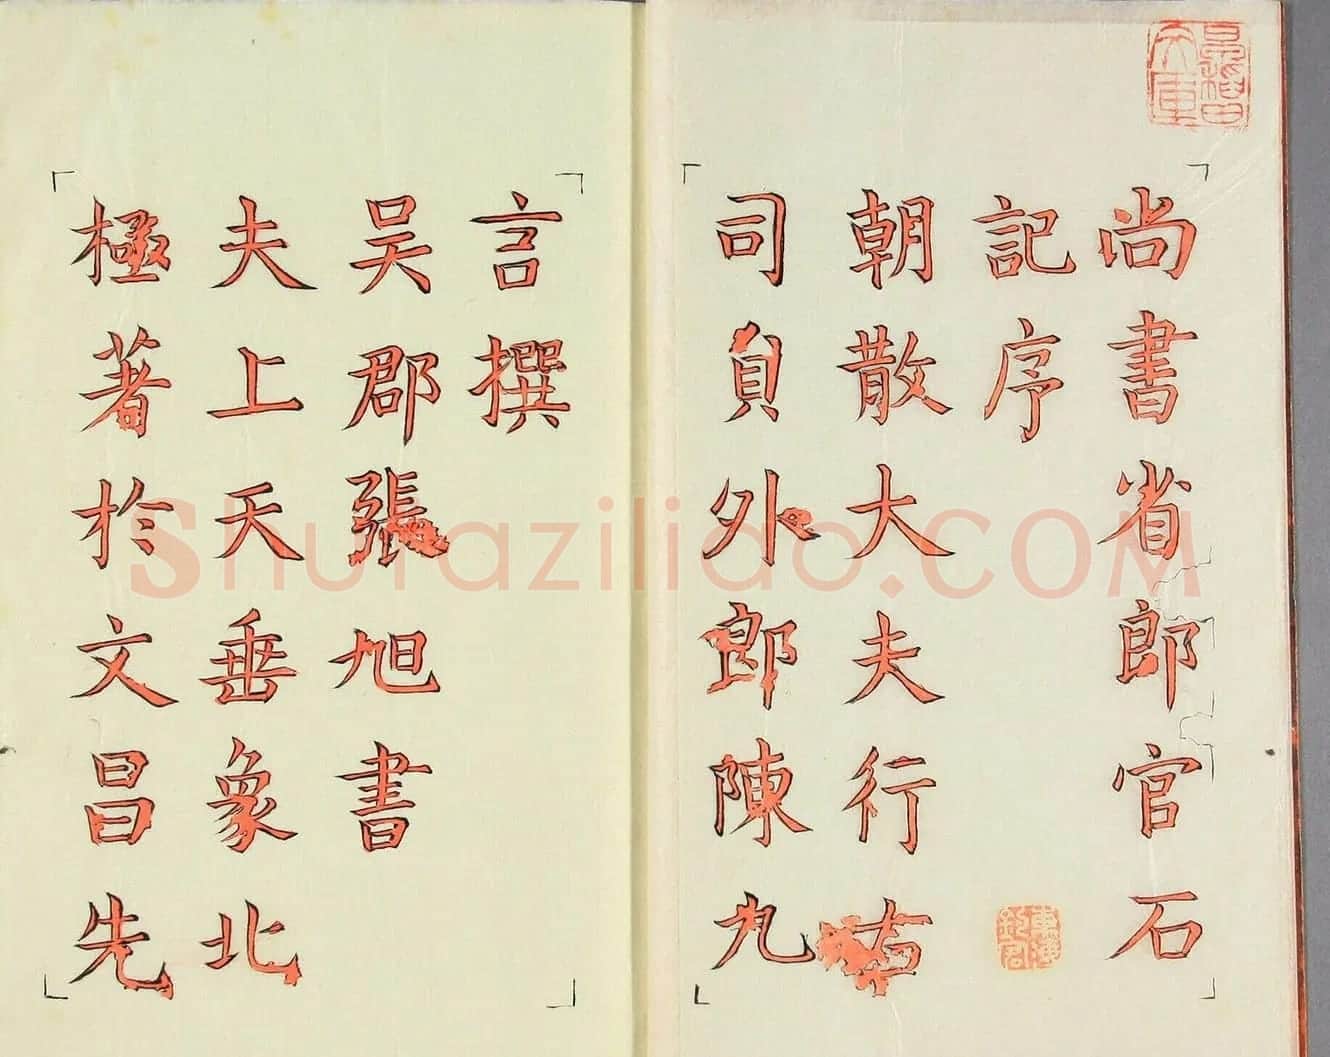 尚書省郎官石
記序
朝散大夫行右
司員外郎陳九
言撰
吴郡張旭書
夫上天垂象北
極著於文昌先
shufaziliao.COM